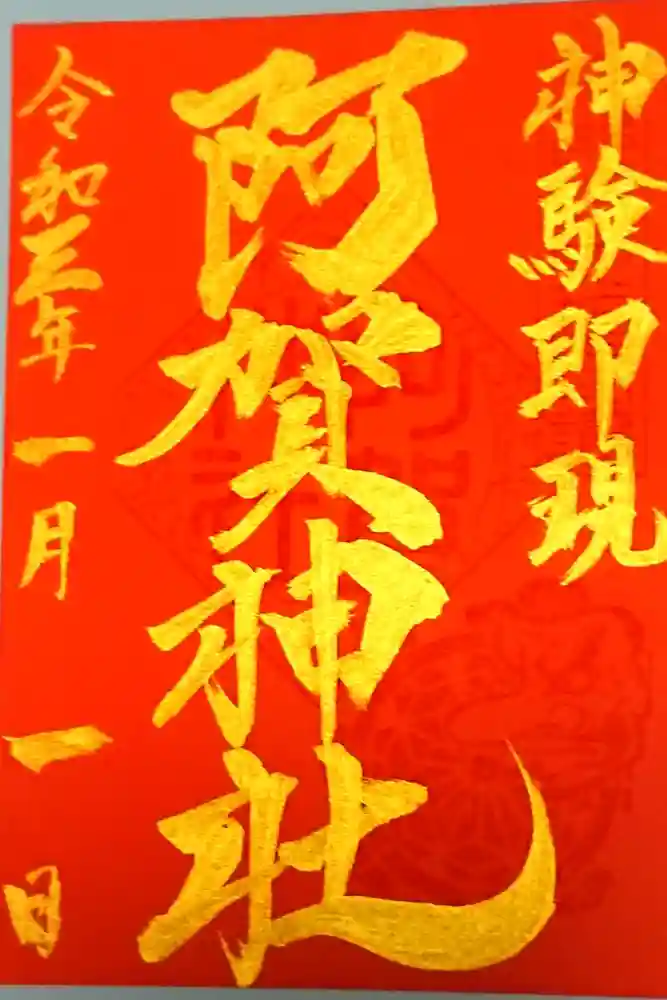 神験即現
阿賀神社
令和三年一月一日